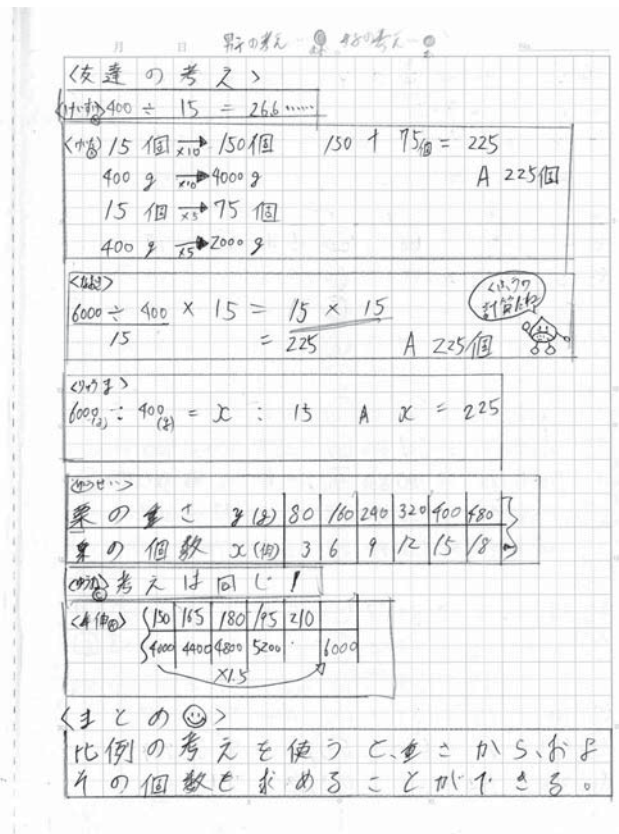 月 日 男子の考え…
<友達の考え>
400 ÷ 15 = 266……
15個 ×10 150個 150 + 75個 = 225
400g ×10 4000g A 225個
15個 ×5 75個
400g ×5 2000g
<なおき>
6000 ÷ 400 × 15 = 15 × 15
15 = 225 A 225個
くふうの
計算だね
<りょうま>
6000(g) : 400(g) = x : 15 A x = 225
栗の重さ y(g) 80 160 240 320 400 480
栗の個数 x(個) 3 6 9 12 15 18
考えは同じ!
150 165 180 195 210
4000 4400 4800 5200 · 6000
×1.5
<まとめ>
比例の考えを使うと、重さから、およ
その個数を求めることができる。